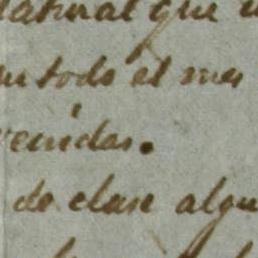 natural que
en todo el mes
venidas.
de clase algu